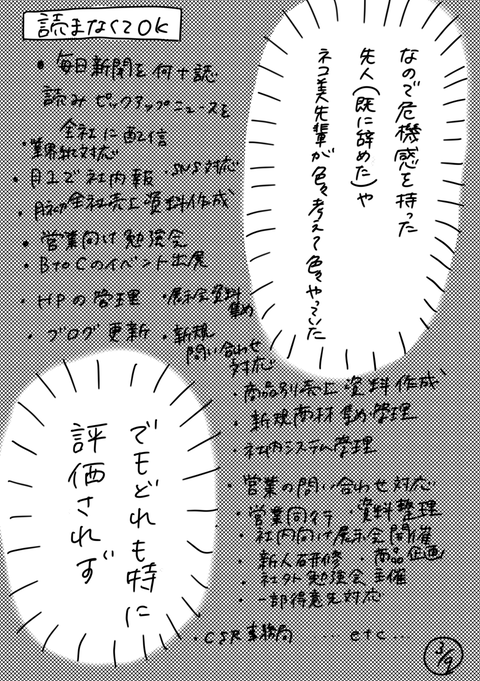 読まなくてOK
なので危機感を持った
先人(既に辞めた)や
ネコ美先輩が色々考えて色々やっていた
・毎日新聞を何十誌
読みピックアップニュースを
全社に配信
・業界紙対応
・月1で社内報 ・SNS対応
・月初全社売上資料作成
・営業向け勉強会
・BtoCのイベント出展
・HPの管理 ・展示会資料
集め
・ブログ更新 ・新規
問い合わせ
対応
・商品別売上資料作成
・新規商材集め・管理
・社内システム管理
・営業の問い合わせ対応
・営業同行 ・資料整理
・社内向け展示会開催
・新人研修 ・商品企画
・社外勉強会主催
・一部得意先対応
・CSR事務局 …etc…
でもどれも特に
評価されず
3/9